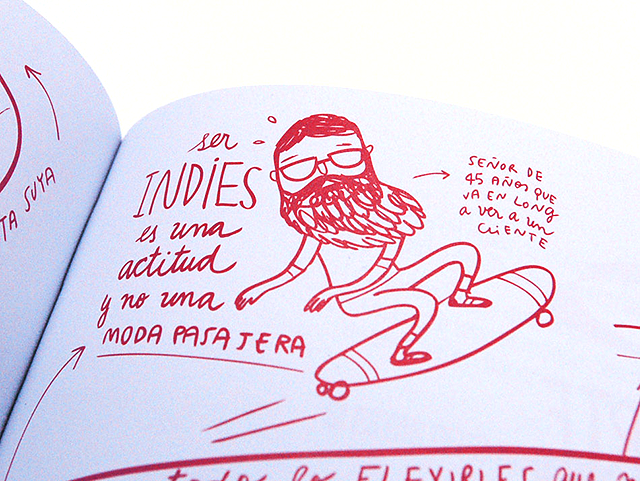 TA SUYA
ser
INDIES
es una
actitud
y no una
MODA PASAJERA
SEÑOR DE
45 AÑOS QUE
VA EN LONG
a ver a un
CLIENTE
FLEXIBLES que